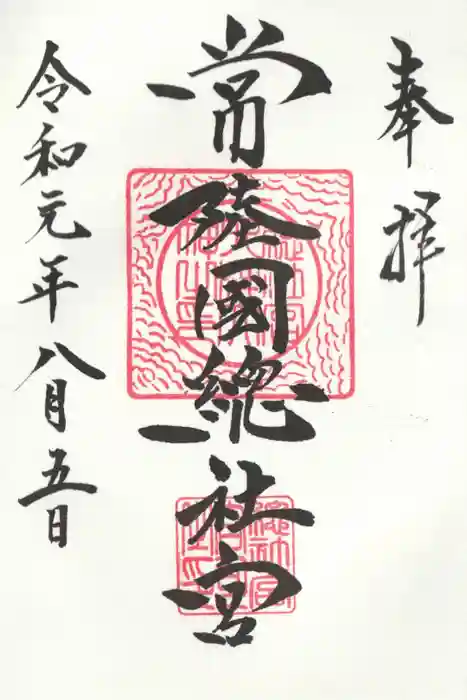 奉拝
常陸國總社宮
令和元年八月五日